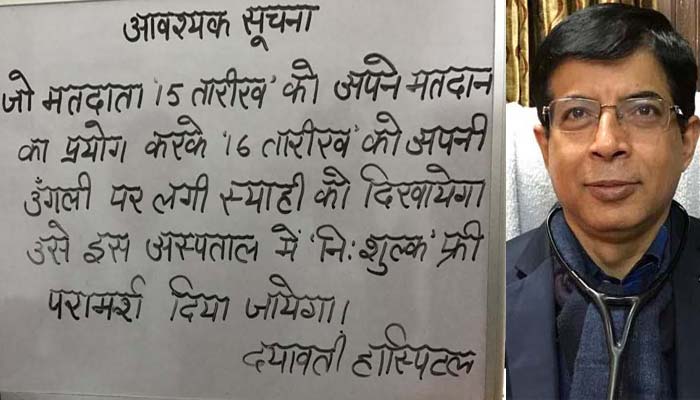 आवश्यक सूचना
जो मतदाता '15 तारीख' को अपने मतदान
का प्रयोग करके '16 तारीख' को अपनी
उँगली पर लगी स्याही को दिखायेगा
उसे इस अस्पताल में 'निःशुल्क' फ्री
परामर्श दिया जायेगा।
दयावती हास्पिटल